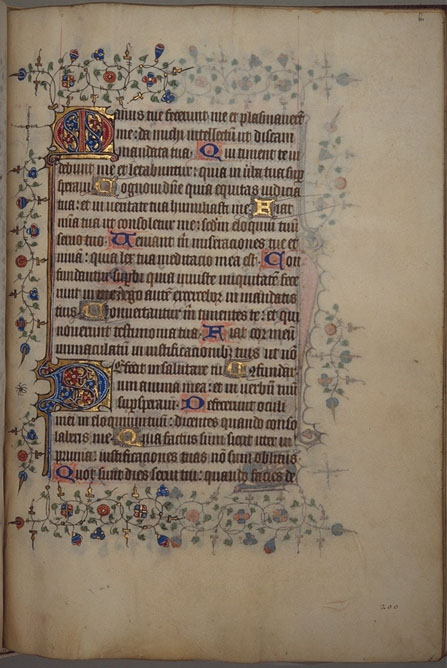 Manus tue fecerunt me et plasmaverūt
me: da michi intellectū ut discam
mandata tua. Qui timent te vi
debunt me et letabuntur: quia in v̄ba tua sup̄
speravi. Cognovi dn̄e quia equitas iudicia
tua: et in veritate tua humiliasti me. Fiat
mīa tua ut consoletur me: scd̄m eloquiū tuū
servo tuo. Veniant m̄ miserationes tue et
vivā: quia lex tua meditatio mea est. Con
fundantur superbi quia iniuste iniquitatē fece
runt in me: ego autē exercebor in mandatis
tuis. Convertantur m̄ timentes te: et qui
noverunt testimonia tua. Fiat cor meū
immaculatum in iustificationibꝫ tuis ut nō
Defecit in salutare tu confundar.
um anima mea: et in verbū tuū
sup̄speravi. Defecerunt oculi
mei in eloquium tuū: dicentes quando conso
laberis me. Quia factus sum sicut uter in
pruina: iustificationes tuas nō sum oblitus
Quot sunt dies servi tui: quando facies de
200